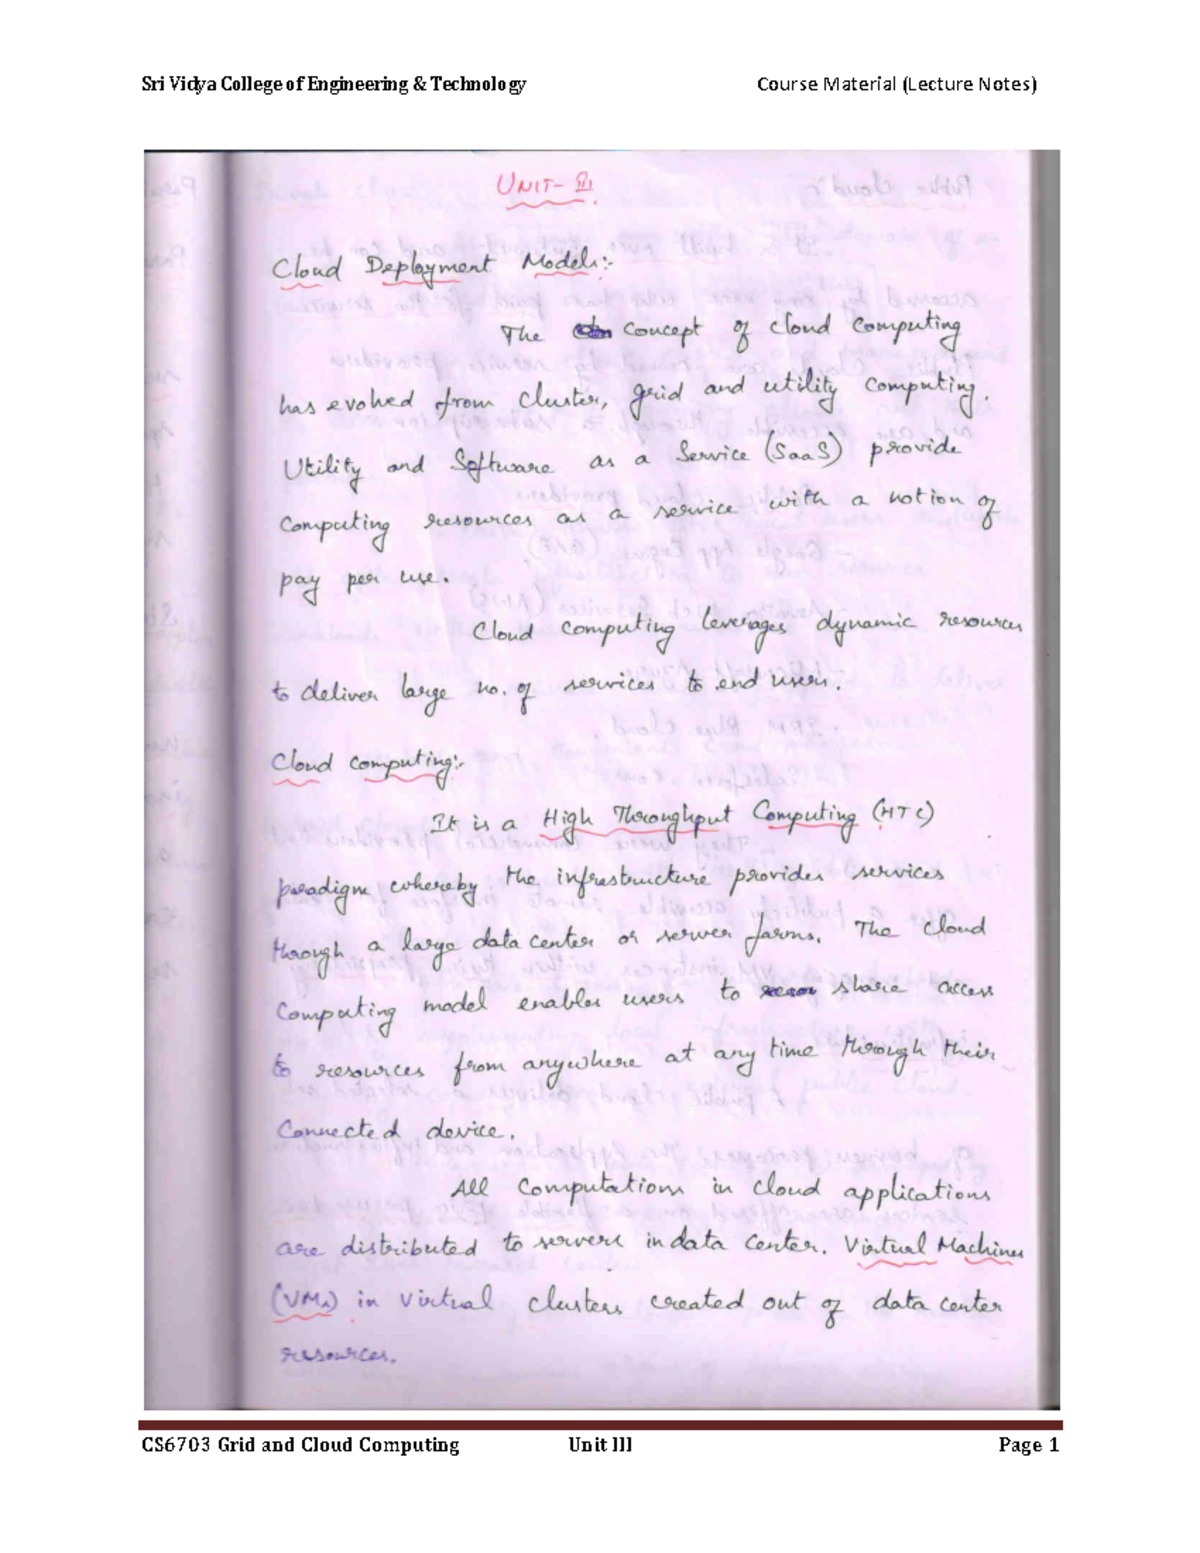 Sri Vidya College of Engineering & Technology Course Material (Lecture Notes)
UNIT-III
Cloud Deployment Models:-
The concept of cloud computing
has evolved from cluster, grid and utility computing.
Utility and Software as a Service (SaaS) provide
computing resources as a service with a notion of
pay per use.
Cloud computing leverages dynamic resources
to deliver large no. of services to end users.
Cloud computing:-
It is a High Throughput Computing (HTC)
paradigm whereby the infrastructure provides services
through a large data center or server farms. The cloud
computing model enables users to share access
to resources from anywhere at any time through their
connected device.
All computations in cloud applications
are distributed to servers in data center. Virtual Machines
(VMs) in virtual clusters created out of data center
resources.
CS6703 Grid and Cloud Computing Unit III Page 1